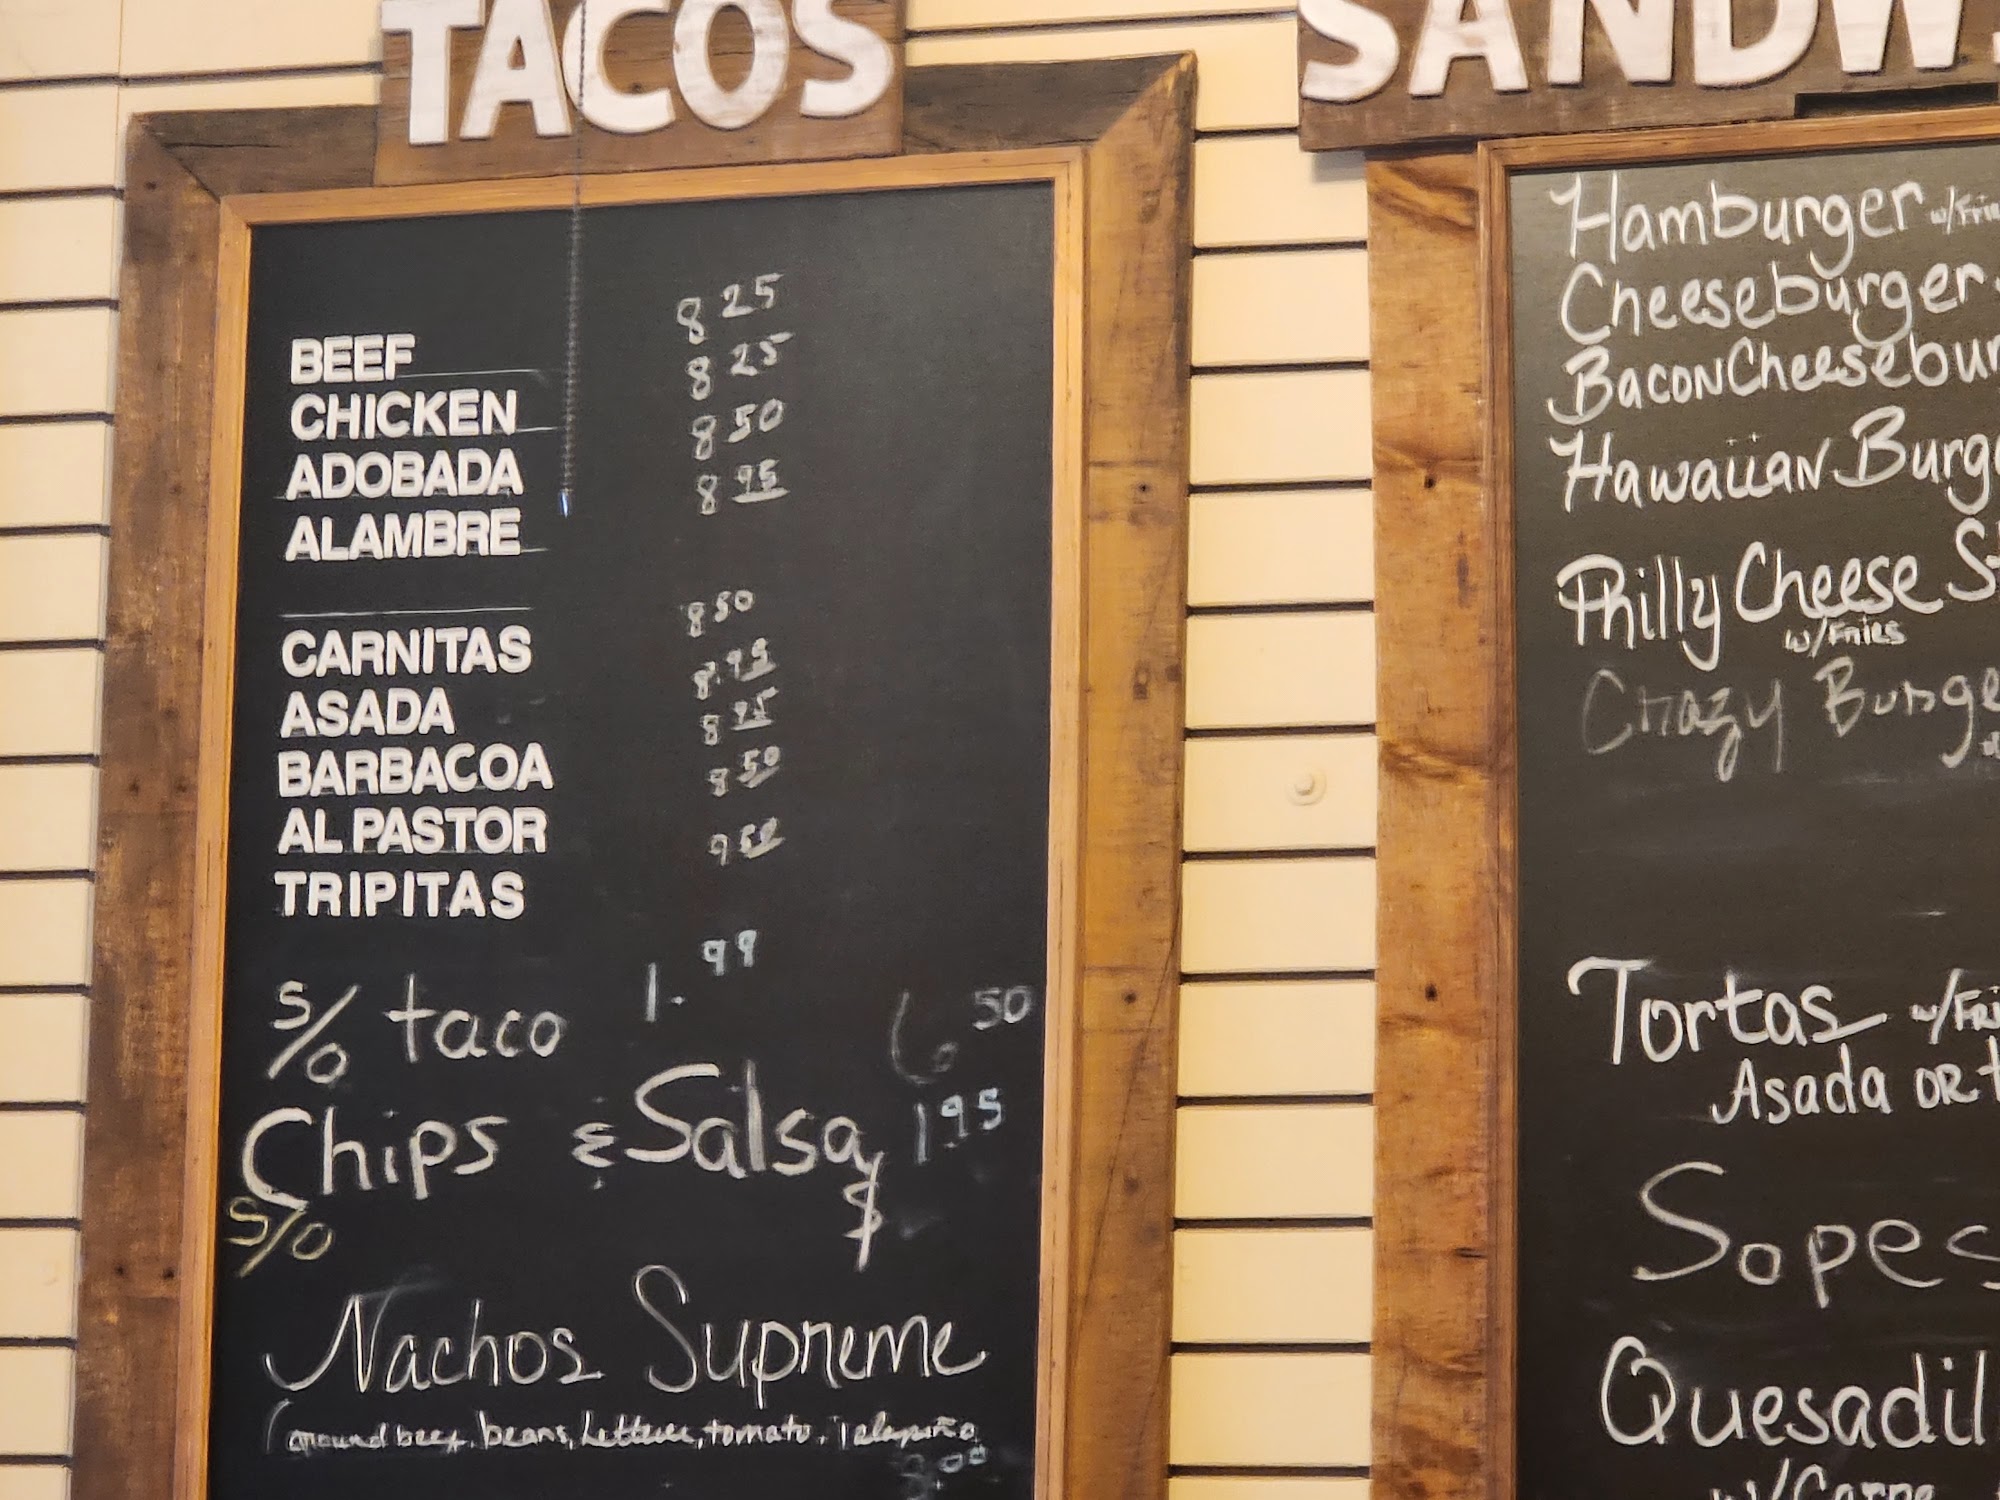 TACOS
BEEF 8 25
CHICKEN 8 25
ADOBADA 8 50
ALAMBRE 8 95
CARNITAS 8 50
ASADA 8.95
BARBACOA 8 95
AL PASTOR 8 50
TRIPITAS 9 50
S/O taco 1.99
6 50
Chips & Salsa 1 95
S/O $
Nachos Supreme
(ground beef, beans, Lettuce, tomato, jalapeño
8.00
SANDW
Hamburger w/Frie
Cheeseburger
BaconCheesebur
Hawaiian Burge
Philly Cheese St
w/Fries
Crazy Burge
Tortas w/Fri
Asada or
Sopes
Quesadil
w/Carne